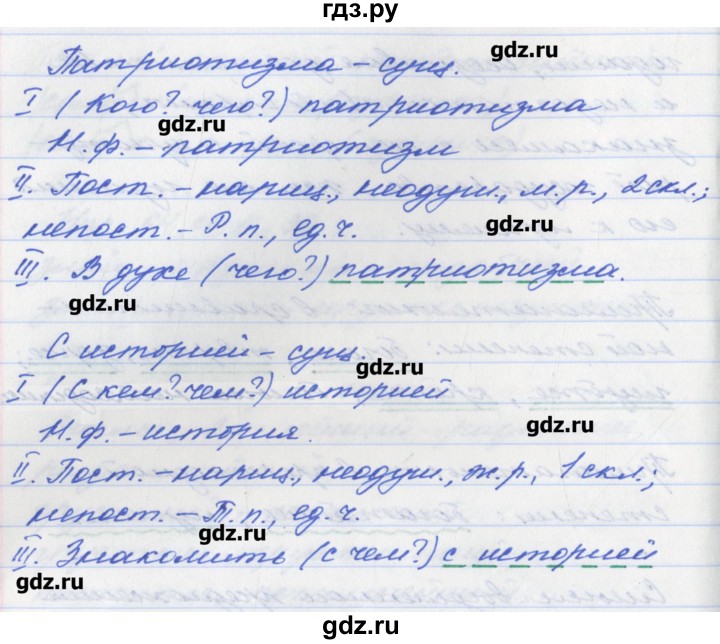 гдз.ру
Патриотизма – сущ.
gdz.ru
I (Кого? чего?) патриотизма
gdz.ru
Н.ф. – патриотизм
II. Пост. – нариц., неодуш., м.р., 2 скл.;
непост. – Р.п., ед.ч.
gdz.ru
III. В духе (чего?) патриотизма.
gdz.ru
С историей – сущ.
gdz.ru
I (С кем? чем?) историей
Н.ф. – история.
gdz.ru
II. Пост. – нариц., неодуш., ж.р., 1 скл.;
непост. – Т.п., ед.ч.
gdz.ru
III. Знакомить (с чем?) с историей
gdz.ru
gdz.ru